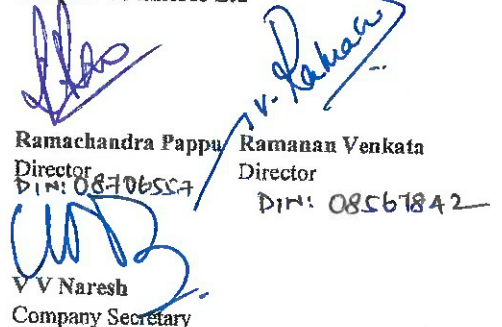 Ramachandra Pappu
Director
DIN: 08706557
V. Raman
Ramanan Venkata
Director
DIN: 08567842
V V Naresh
Company Secretary